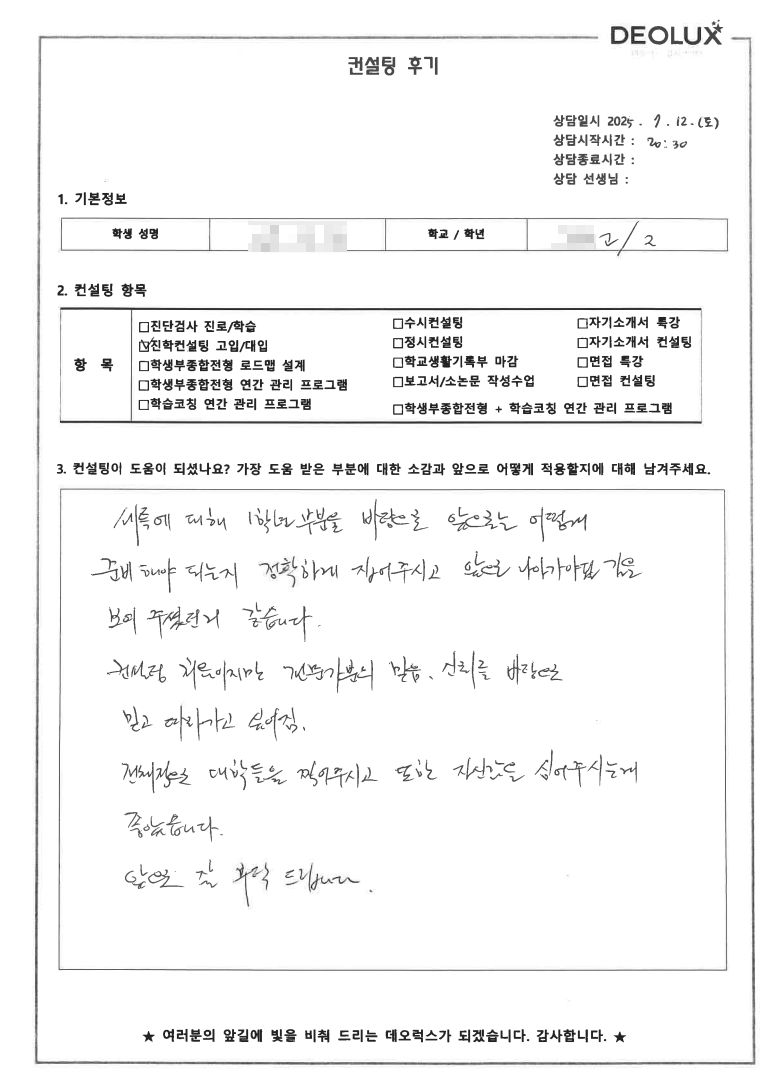 DEOLUX
컨설팅 후기
상담일시 2025. 7. 12. (토)
상담시작시간 : 20:30
상담종료시간 :
상담 선생님 :
1. 기본정보
학생 성명 학교 / 학년 고/2
2. 컨설팅 항목
항 목
□진단검사 진로/학습 □수시컨설팅 □자기소개서 특강
☑진학컨설팅 고입/대입 □정시컨설팅 □자기소개서 컨설팅
□학생부종합전형 로드맵 설계 □학교생활기록부 마감 □면접 특강
□학생부종합전형 연간 관리 프로그램 □보고서/소논문 작성수업 □면접 컨설팅
□학습코칭 연간 관리 프로그램 □학생부종합전형 + 학습코칭 연간 관리 프로그램
3. 컨설팅이 도움이 되셨나요? 가장 도움 받은 부분에 대한 소감과 앞으로 어떻게 적용할지에 대해 남겨주세요.
세특에 대해 1학년 부분을 바탕으로 앞으로는 어떻게
준비해야 되는지 정확하게 짚어주시고 앞으로 나아가야할 길을
보여 주셨던거 같습니다.
컨설팅 처음이지만 전문가분의 말씀, 신뢰를 바탕으로
믿고 따라가고 싶어짐.
전체적으로 대학들을 찍어주시고 또한 자신감을 심어주시는게
좋았습니다.
앞으로 잘 부탁 드립니다.
★ 여러분의 앞길에 빛을 비춰 드리는 데오럭스가 되겠습니다. 감사합니다. ★